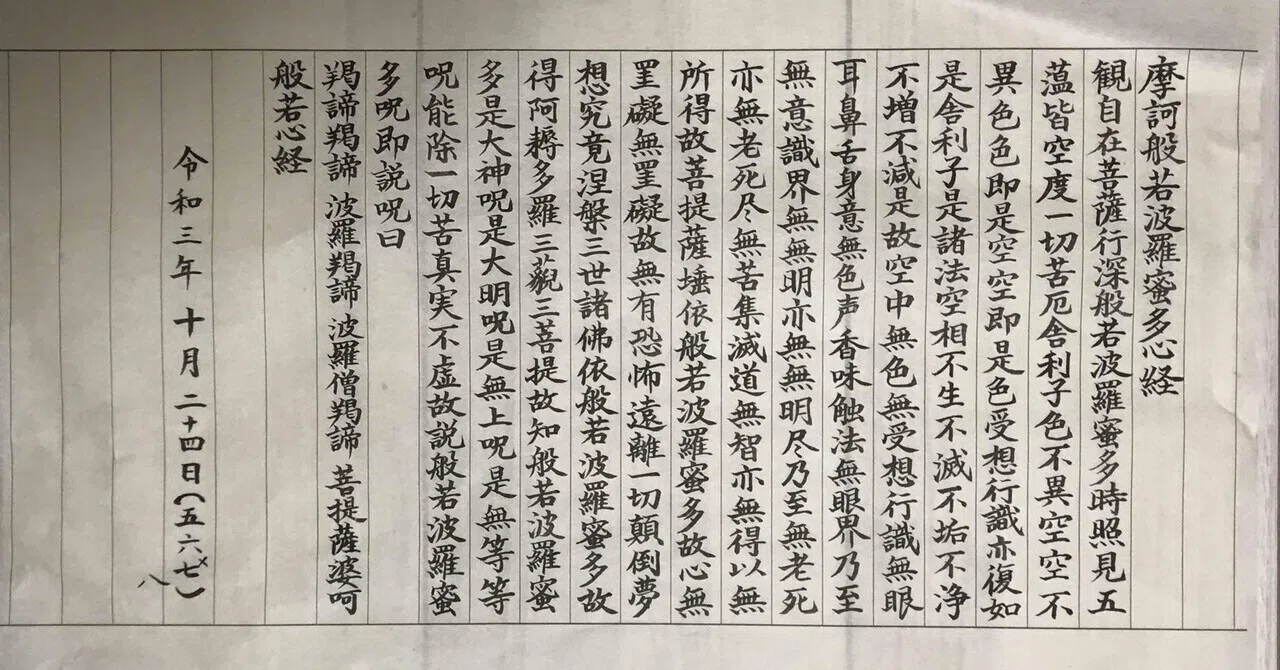 摩訶般若波羅蜜多心経
観自在菩薩行深般若波羅蜜多時照見五
薀皆空度一切苦厄舎利子色不異空空不
異色色即是空空即是色受想行識亦復如
是舎利子是諸法空相不生不滅不垢不浄
不増不減是故空中無色無受想行識無眼
耳鼻舌身意無色声香味触法無眼界乃至
無意識界無無明亦無無明尽乃至無老死
亦無老死尽無苦集滅道無智亦無得以無
所得故菩提薩埵依般若波羅蜜多故心無
罣礙無罣礙故無有恐怖遠離一切顛倒夢
想究竟涅槃三世諸佛依般若波羅蜜多故
得阿耨多羅三藐三菩提故知般若波羅蜜
多是大神呪是大明呪是無上呪是無等等
呪能除一切苦真実不虚故説般若波羅蜜
多呪即説呪曰
羯諦羯諦 波羅羯諦 波羅僧羯諦 菩提薩婆呵
般若心経
令和三年十月二十四日(五六七)
八